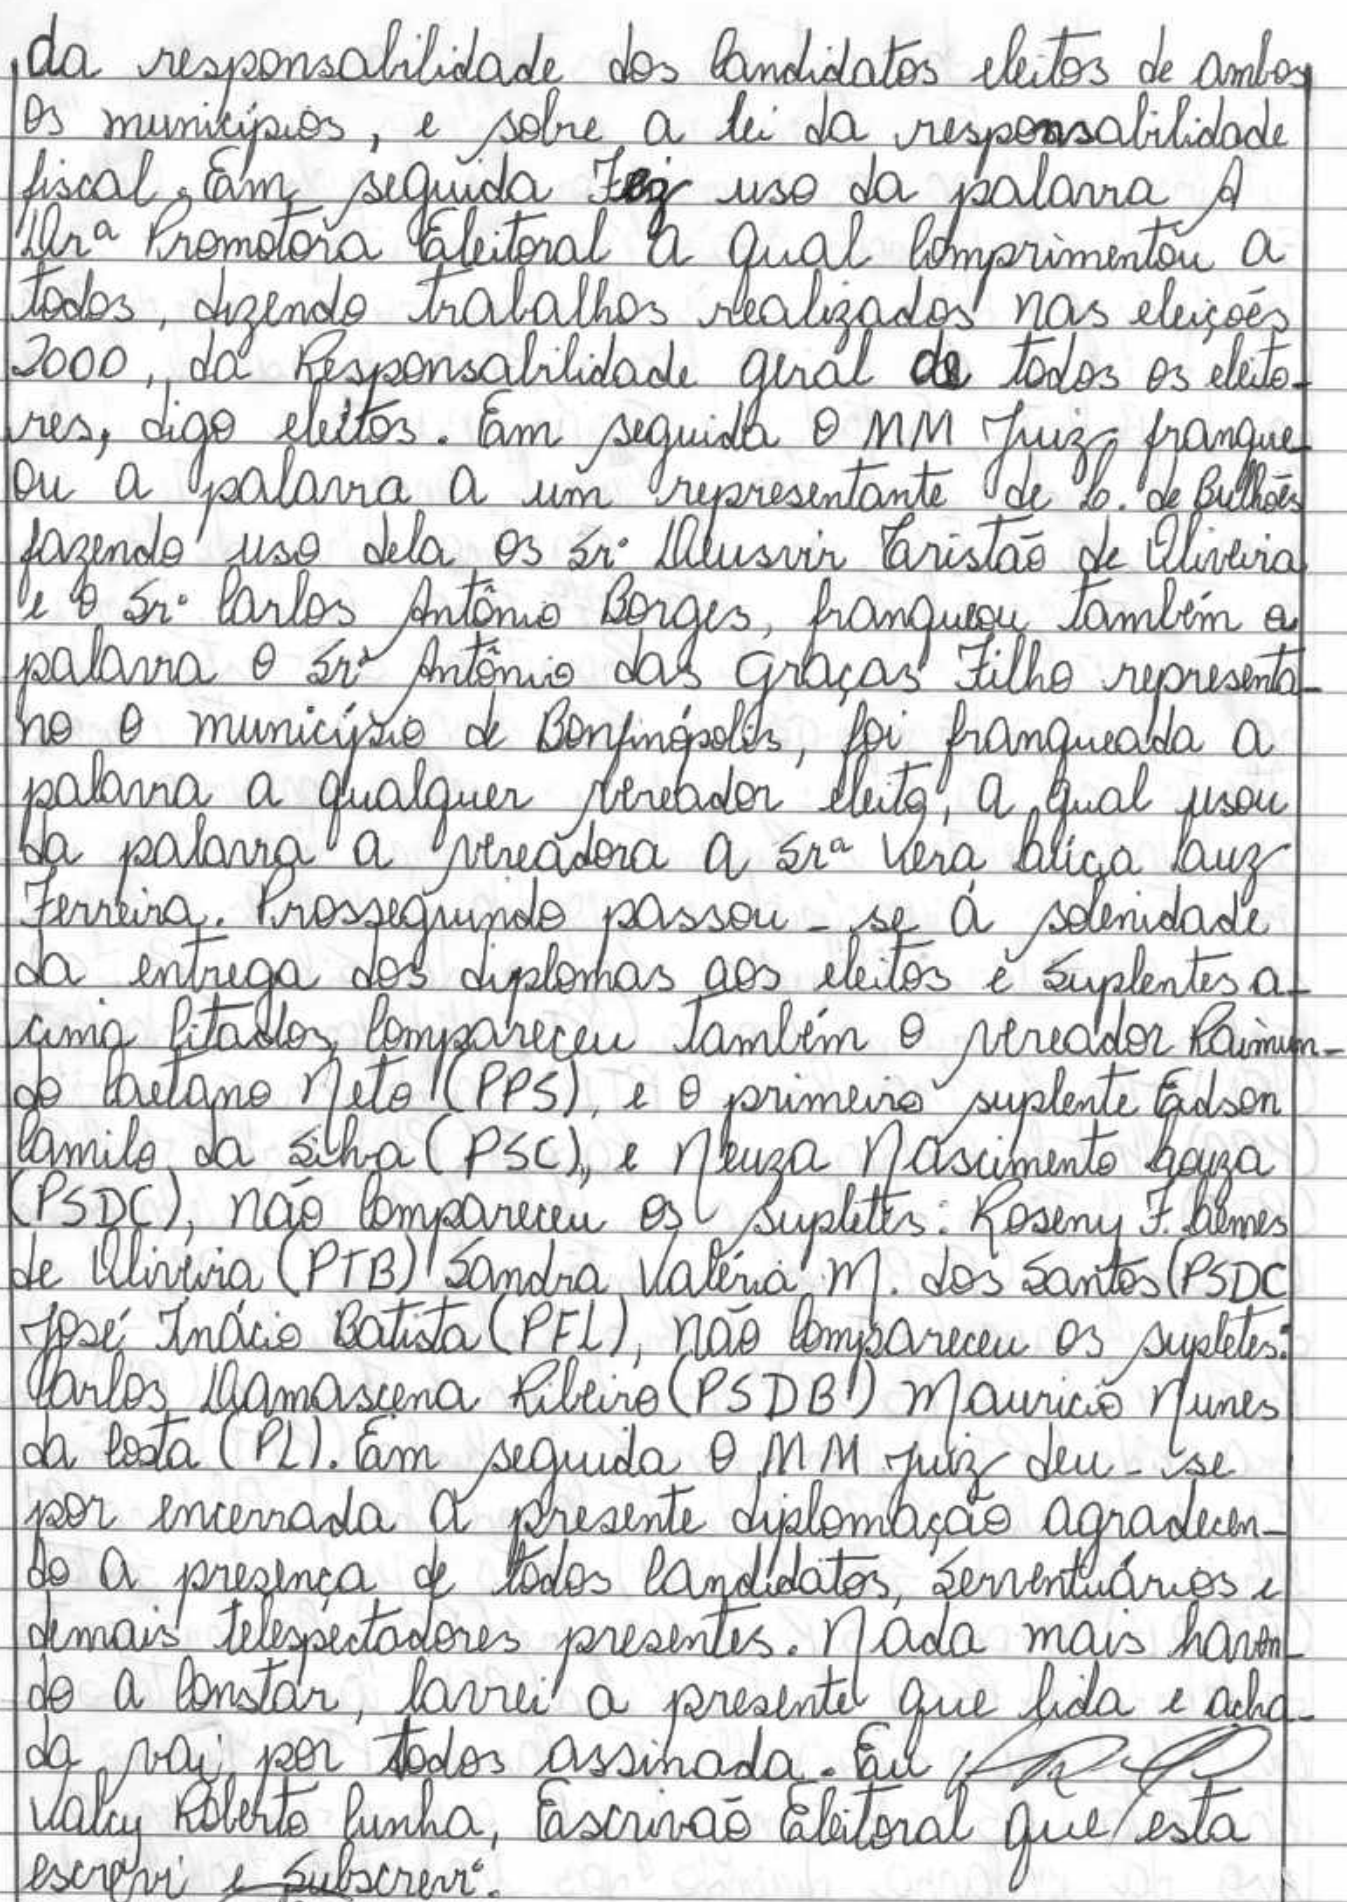 da responsabilidade dos Candidatos eleitos de ambos
os municípios, e sobre a lei da responsabilidade
fiscal. Em seguida Fez uso da palavra A
Drª Promotora Eleitoral a qual Comprimentou a
todos, dizendo trabalhos realizados nas eleições
2000, da Responsabilidade geral de todos os eleito-
res, digo eleitos. Em seguida o MM Juiz franque-
ou a palavra a um representante de L. de Bulhões
fazendo uso dela os Srº Deusvir Taristão de Oliveira
e o Srº Carlos Antônio Borges, franqueou também a
palavra o Srº Antônio das Graças Filho representa-
no o município de Bonfinópolis, foi franqueada a
palavra a qualquer vereador eleito, a qual usou
da palavra a vereadora a Srª Vera Cauz
Ferreira. Prosseguindo passou-se á solenidade
da entrega dos diplomas aos eleitos e Suplentes a-
cima Citados, Compareceu também o vereador Raimun-
do Caetano Neto (PPS), e o primeiro suplente Edson
Camilo da Silva (PSC), e Neuza Nascimento Souza
(PSDC), não Compareceu os Supletes: Roseny F. Gemes
de Oliveira (PTB) Sandra Valéria M. dos Santos (PSDC
José Inácio Batista (PFL), não Compareceu os supletes:
Carlos Damascena Ribeiro (PSDB) Mauricio Nunes
da Costa (PL). Em seguida o MM Juiz deu-se
por encerrada a presente diplomação agradecen-
do a presença de todos Candidatos, Serventuários e
demais telespectadores presentes. Nada mais haven-
do a Constar, lavrei a presente que lida e acha-
da vai por todos assinada. Eu
Valcy Roberto Cunha, Escrivão Eleitoral que esta
escrevi e Subscrevi.